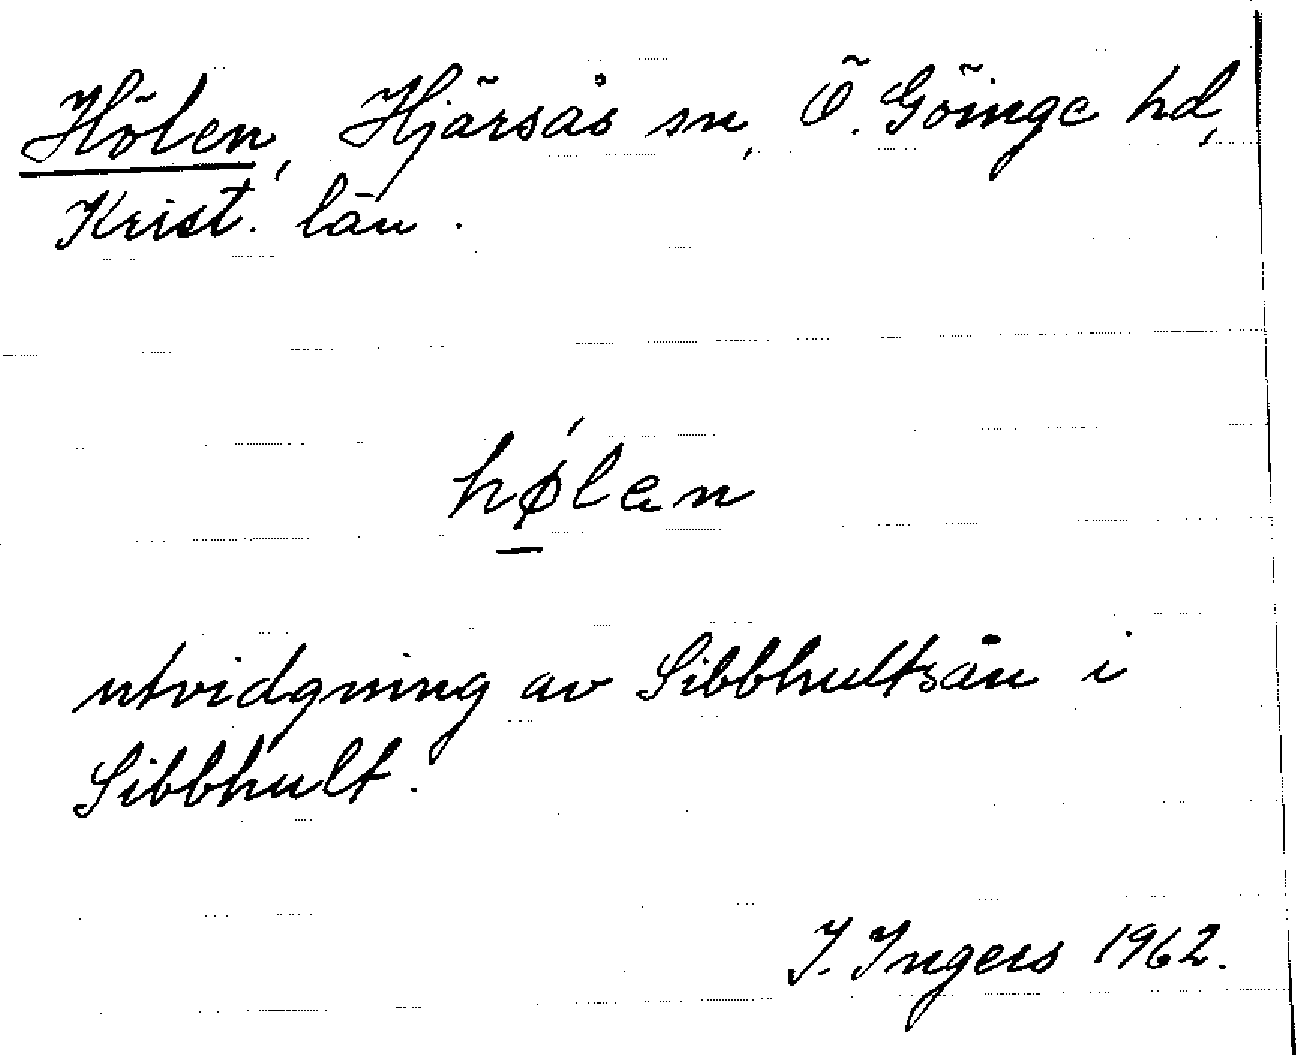 Hölen, Hjärsås sn, Ö. Göinge hd,
Krist. län.
hǿ̱lan
utvidgning av Sibbhultsån i
Sibbhult.
I. Ingers 1962.